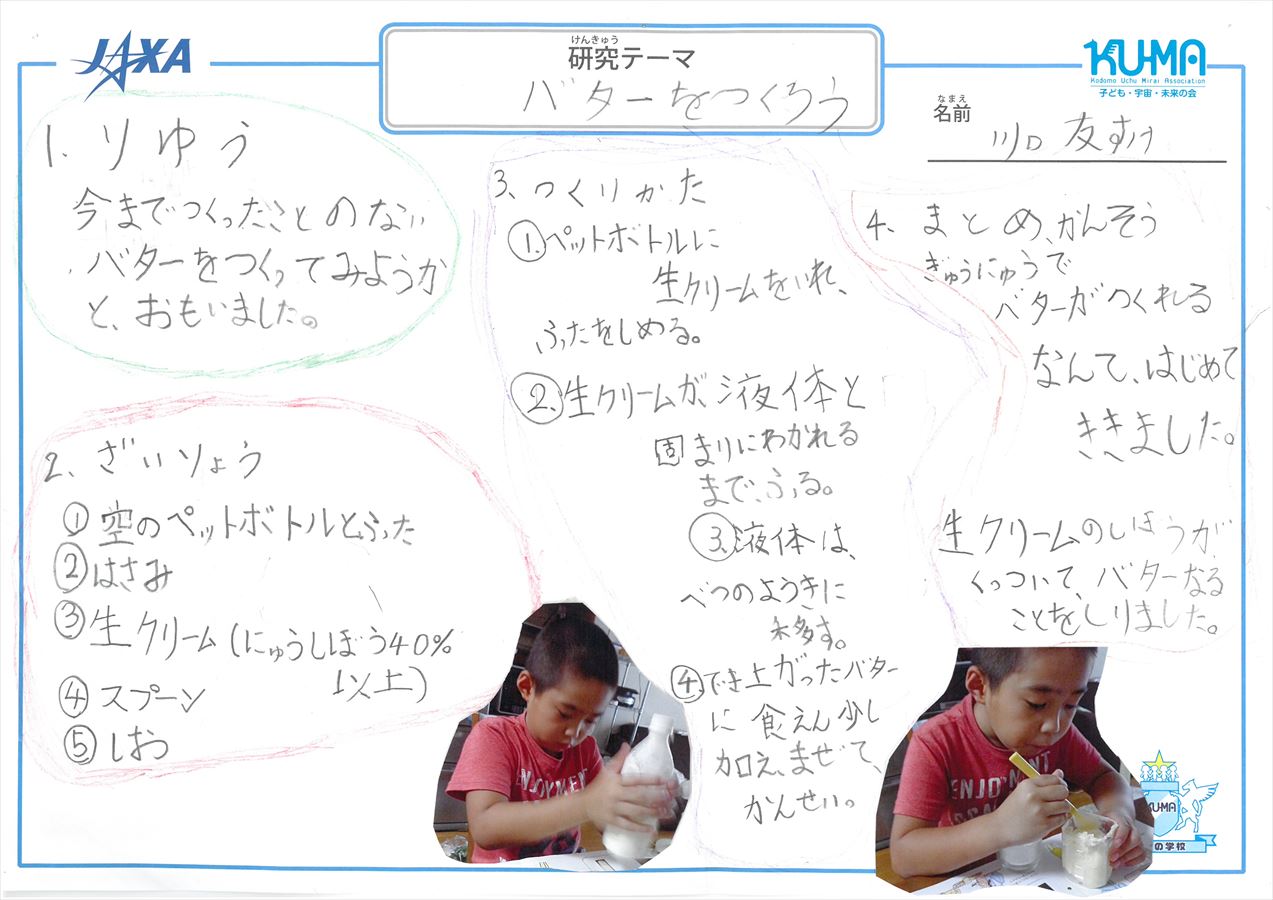 JAXA
けんきゅう
研究テーマ
バターをつくろう
KU-MA
Kodomo Uchu Mirai Association
子ども・宇宙・未来の会
なまえ
名前
川口 友すけ
1. りゆう
今までつくったことのない
バターをつくってみようか
と、おもいました。
2、ざいりょう
① 空のペットボトルとふた
② はさみ
③ 生クリーム(にゅうしぼう40%
以上)
④ スプーン
⑤ しお
3、つくりかた
①.ペットボトルに
生クリームをいれ、
ふたをしめる。
②.生クリームが液体と
固まりにわかれる
まで、ふる。
③.液体は、
べつのようきに
移す。
④.でき上がったバター
に食えん少し
加え、まぜて、
かんせい。
4、まとめ、かんそう
ぎゅうにゅうで
バターがつくれる
なんて、はじめて
ききました。
生クリームのしぼうが
くっついて、バターなる
ことをしりました。
ENJOYMENT
ENJOYMENT
KU-MA
の学校